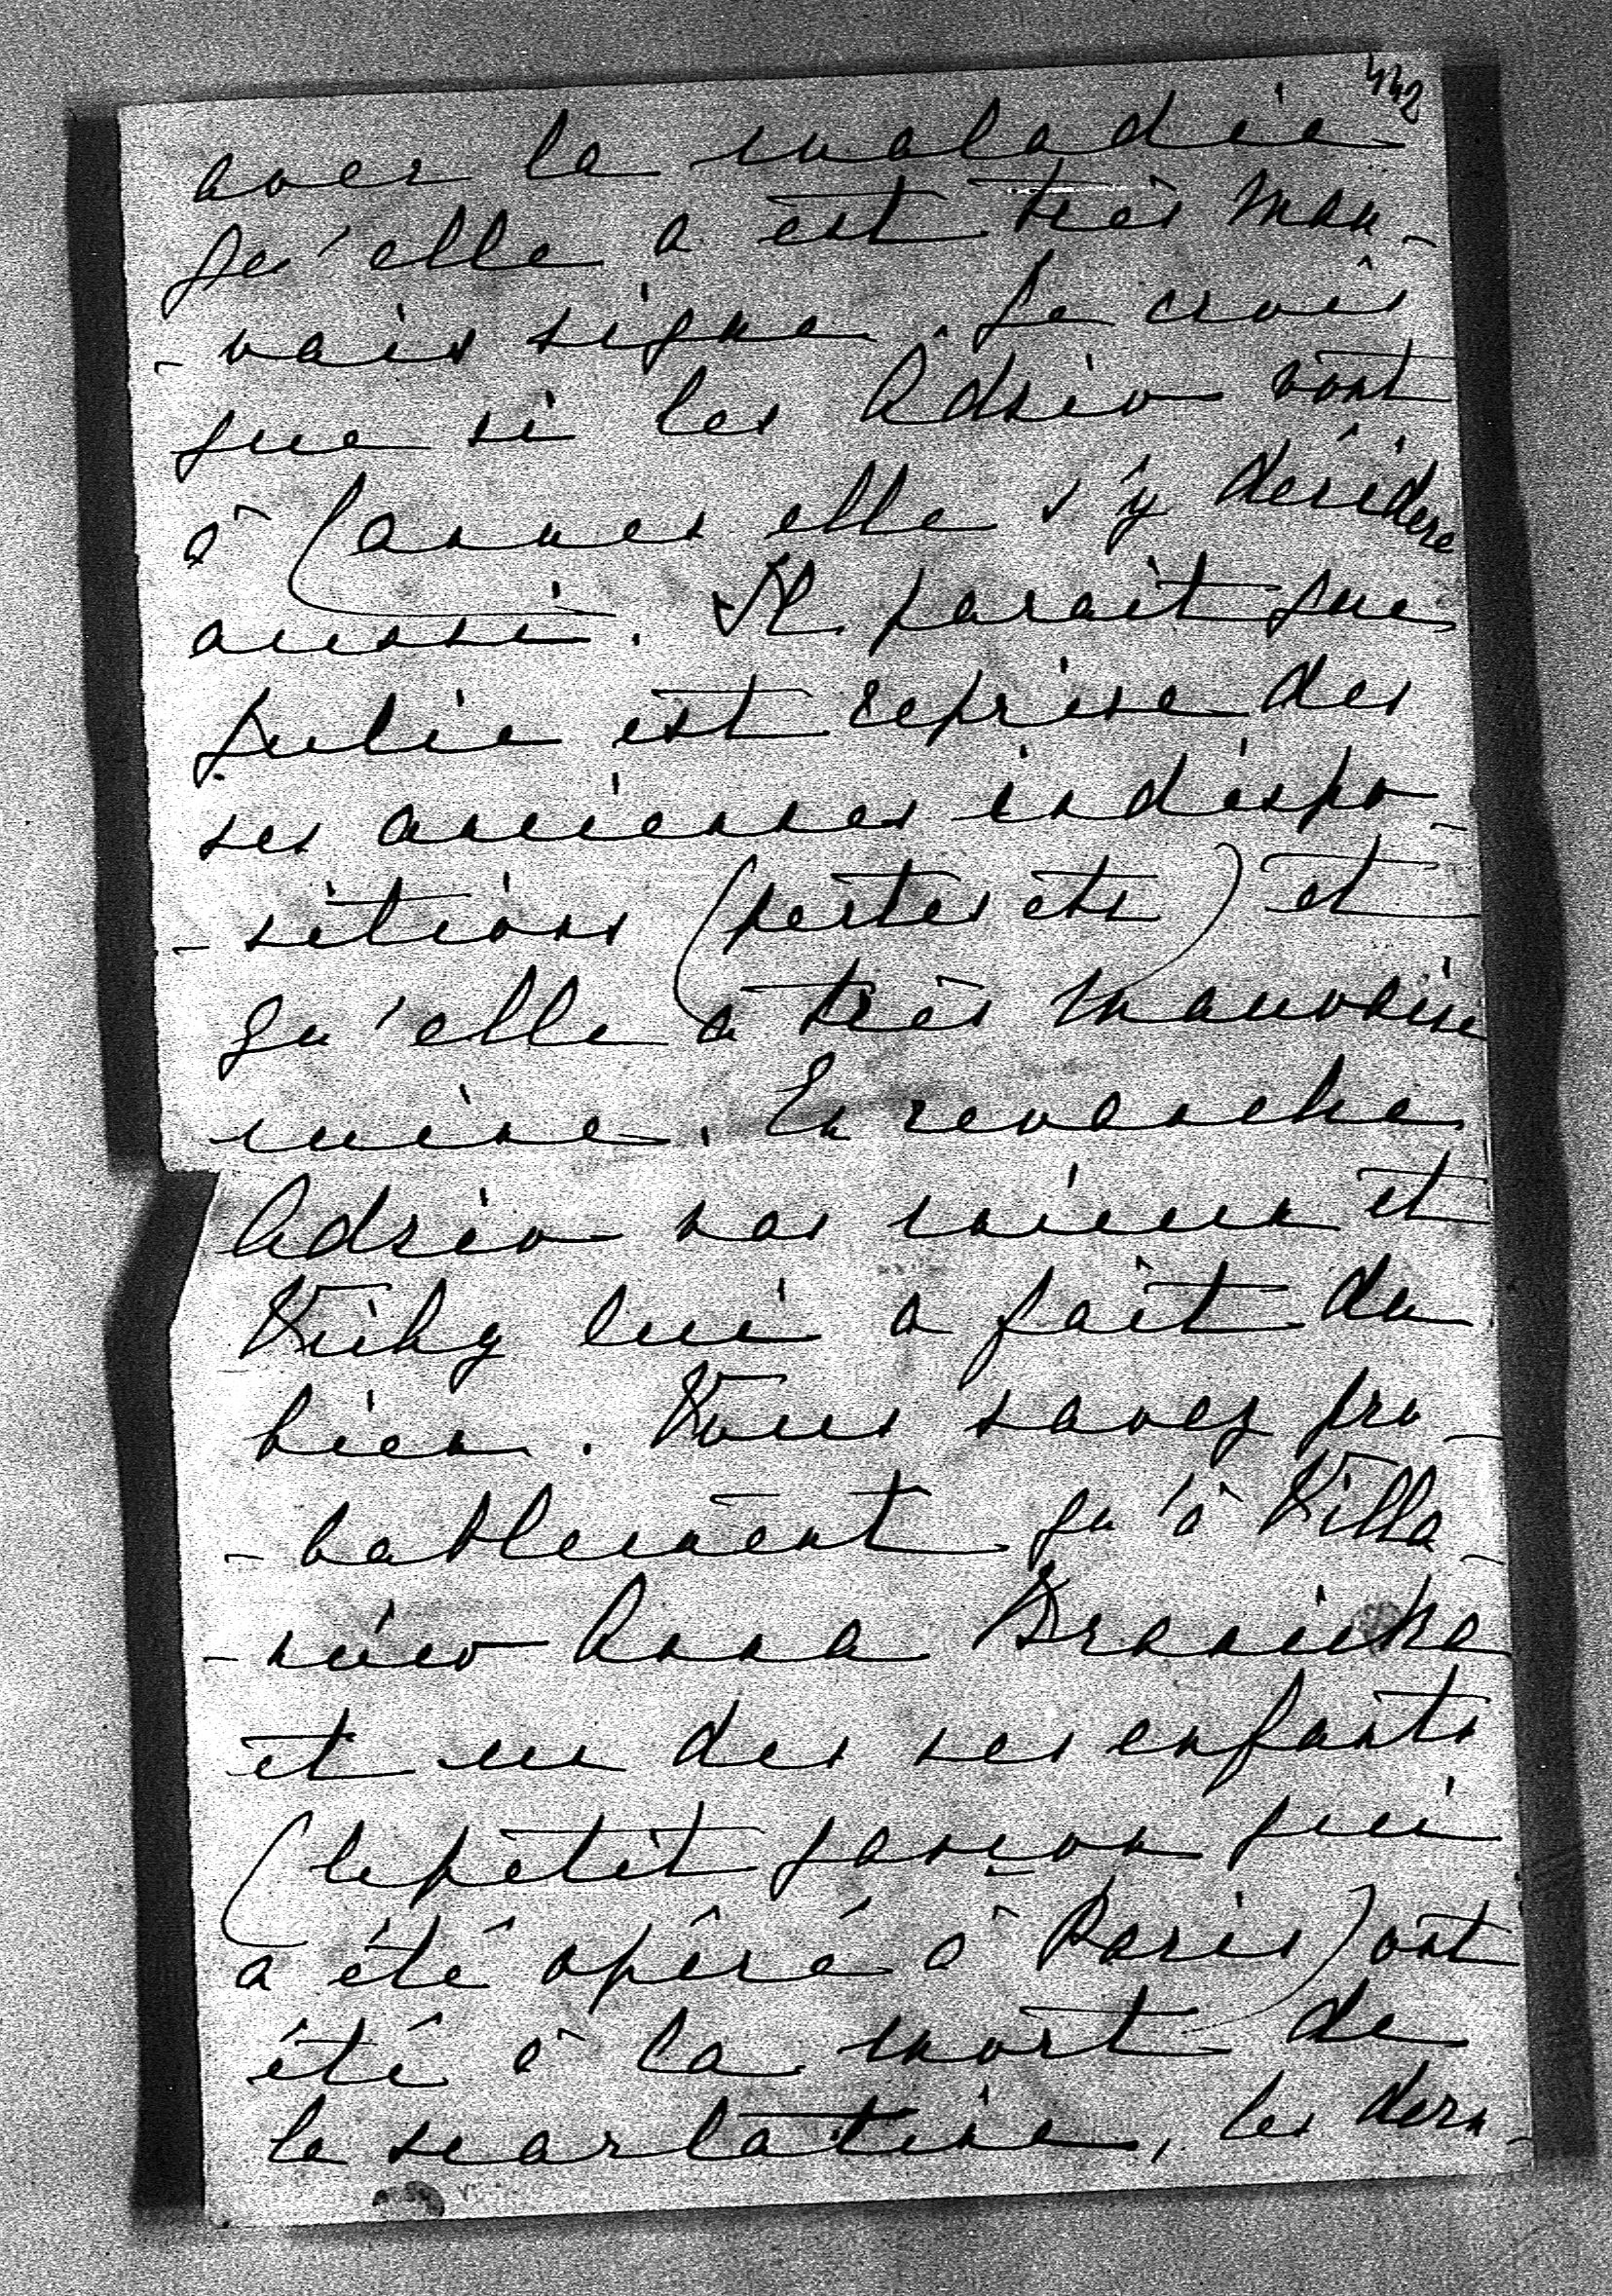 442
avec la maladie
qu'elle a est très mau-
-vais signe. Je crois
que si les Adzio vont
à Cannes elle s'y décidera
aussi. Il parait que
Julie est reprise des
ses anciennes indispo-
-sitions (pertes etc) et
qu'elle a très mauvaise
mine. En revanche
Adzio vas mieux et
Vichy lui a fait du
bien. Vous savez pro-
-bablement qu'à Villa-
-nów Anna Branicka
et un des ses enfants
(le petit garçon qui
a été opéré à Paris) ont
été à la mort de
la scarlatine, les deux